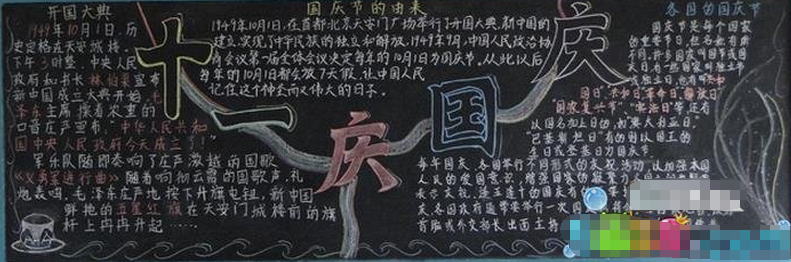 开国大典
1949年10月1日,历
史定格在天安城楼,
下午3时整,中央人民
政府和书长林伯渠宣布
新中国成立大典开始,毛
泽东主席操着浓重的
口音庄严宣布,"中华人民共和
国中央人民政府今天成立了!"
军乐队随即奏响了庄严激越的国歌
《义勇军进行曲》随着响彻云霄的国歌声,礼
炮轰鸣,毛泽东庄严地按下升旗电钮,新中国
鲜艳的五星红旗在天安门城楼前的旗
杆上冉冉升起……
国庆节的由来
1949年10月1日,在首都北京天安门广场举行了开国大典,新中国的
建立,实现了中华民族的独立和解放,1949年9月,中国人民政治协
商会议第一届全体会议决定每年的10月1日为国庆节,从此以后
每年的10月1日都会放7天假,让中国人民
记住这个神圣而又伟大的日子。
十一庆国庆
各国的国庆节
国庆节是每个国家
的重要节日,但名称有所
国日""共和日""革命日""解放日"
"国家复兴节""宪法日"等,还有
以国名加上日的,如"澳大利亚日"
"巴基斯坦日"有的则以国王的
生日或登基日为国庆节
每年国庆,各国举行不同形式的庆祝活动,以加强本国
人民的爱国意识,增强国家的凝聚力
庆,各国政府通常要举行一次国庆
首脑或外交部长出面主持